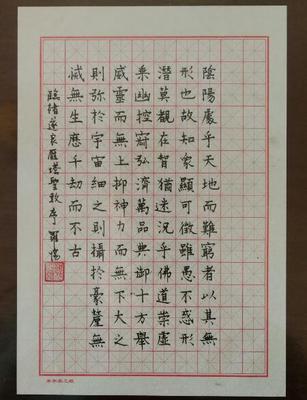 陰陽處乎天地而難窮者以其無
形也故知象顯可徵雖愚不惑形
潛莫覩在智猶迷況乎佛道崇虛
乘幽控寂弘濟萬品典御十方舉
威靈而無上抑神力而無下大之
則彌於宇宙細之則攝於豪釐無
滅無生歷千劫而不古
臨褚遂良雁塔聖教序 羅